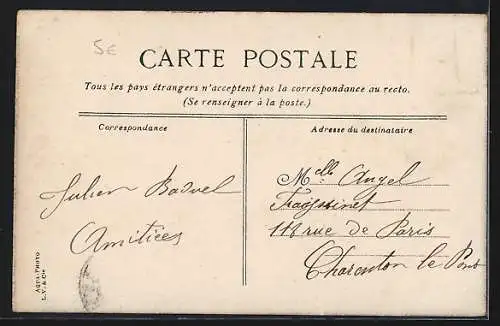 5€
CARTE POSTALE
Tous les pays étrangers n'acceptent pas la correspondance au recto.
(Se renseigner à la poste.)
Correspondance
Adresse du destinataire
Julien Baduel
Amitiées
Melle Angel
118 rue de Paris
Charenton le Pont
AQUA-PHOTO
L.V. & Cie